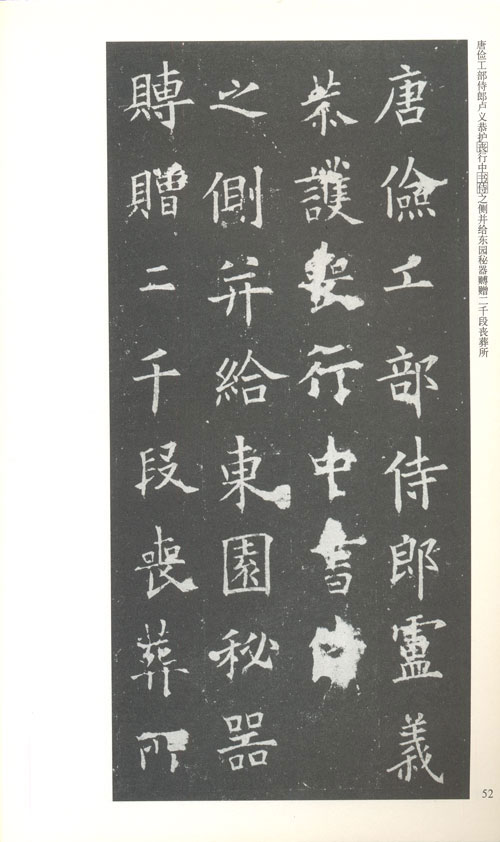 唐俭工部侍郎卢义恭护丧行中书侍之侧并给东园秘器赙赠二千段丧葬所
唐儉工部侍郎盧義
恭護喪行中書侍
之側并給東園秘器
賻贈二千段喪葬所
52